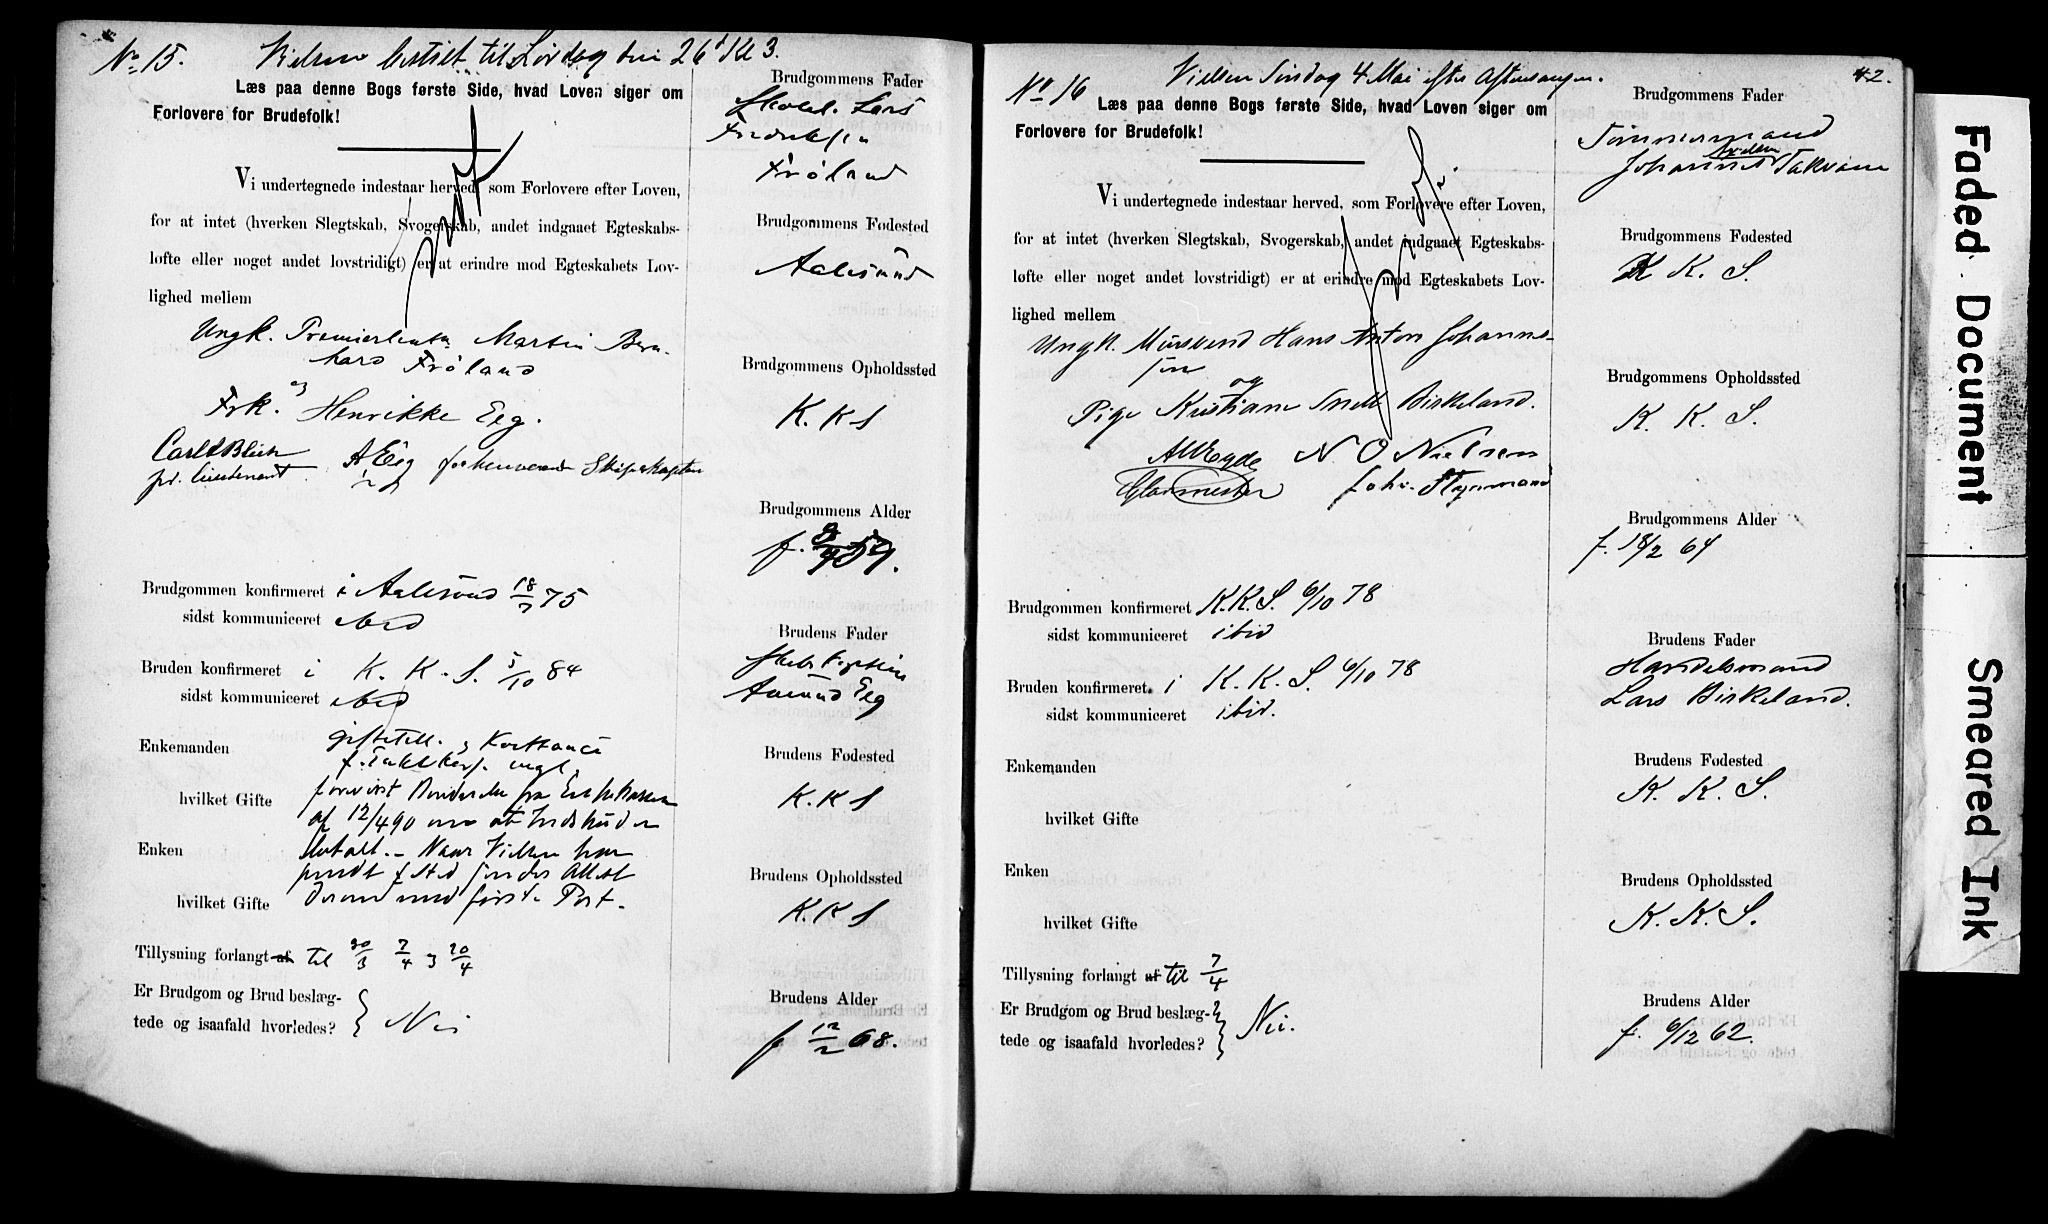 No 15. Vielsen bestilt til Lørdag den 26' Kl 3.
Læs paa denne Bogs første Side, hvad Loven siger om
Forlovere for Brudefolk!
Vi undertegnede indestaar herved, som Forlovere efter Loven,
for at intet (hverken Slegtskab, Svogerskab, andet indgaaet Egteskabs-
løfte eller noget andet lovstridigt) er at erindre mod Egteskabets Lov-
lighed mellem
Ungk. Premierlieutn Martin Bern-
hard Frøland
og
Frk. Henrikke Eeg.
Carl Blich
pr. lieutenant
A Eeg forhenværende Skipskaptein
Brudgommen konfirmeret i Aalesund 18/7 75
sidst kommuniceret ibid
Bruden konfirmeret i K. K. S. 5/10 84
sidst kommuniceret ibid
Enkemanden
hvilket Gifte
Enken
hvilket Gifte
forevist fra Enkekassen
af 12/4 90 om at Indskud er
betalt. - Naar Vielsen har
fundet sted sendes Attest
derom med første Post.
Tillysning forlangt af til 30/3 7/4 og 20/4
Er Brudgom og Brud beslæg-
tede og isaafald hvorledes? } Nei
Brudgommens Fader
Lars
Fredriksen
Frøland
Brudgommens Fødested
Aalesund
Brudgommens Opholdssted
K. K S
Brudgommens Alder
f. 59.
Brudens Fader
Skibskaptein
Amund Eeg
Brudens Fødested
K. K S
Brudens Opholdssted
K. K S
Brudens Alder
f 12/2 68.
42.
No 16 Vielsen Søndag 4 Mai efter Aftensangen.
Læs paa denne Bogs første Side, hvad Loven siger om
Forlovere for Brudefolk!
Vi undertegnede indestaar herved, som Forlovere efter Loven,
for at intet (hverken Slegtskab, Svogerskab, andet indgaaet Egteskabs-
løfte eller noget andet lovstridigt) er at erindre mod Egteskabets Lov-
lighed mellem
Ungk. Mursvend Hans Anton Johanne-
sen
og
Pige Kristiane Birkeland.
N O Nielsen
Glasmester
Brudgommen konfirmeret K. K. S. 6/10 78
sidst kommuniceret ibid
Bruden konfirmeret i K. K. S. 6/10 78
sidst kommuniceret ibid.
Enkemanden
hvilket Gifte
Enken
hvilket Gifte
Tillysning forlangt af til 7/4
Er Brudgom og Brud beslæg-
tede og isaafald hvorledes? } Nei.
Brudgommens Fader
Tømmermand
Johannes Takvam
Brudgommens Fødested
K K. S.
Brudgommens Opholdssted
K. K. S.
Brudgommens Alder
f. 18/2 64
Brudens Fader
Handelsmand
Lars Birkeland.
Brudens Fødested
K. K. S.
Brudens Opholdssted
K. K. S.
Brudens Alder
f. 6/12 62.
Faded Document
Smeared Ink